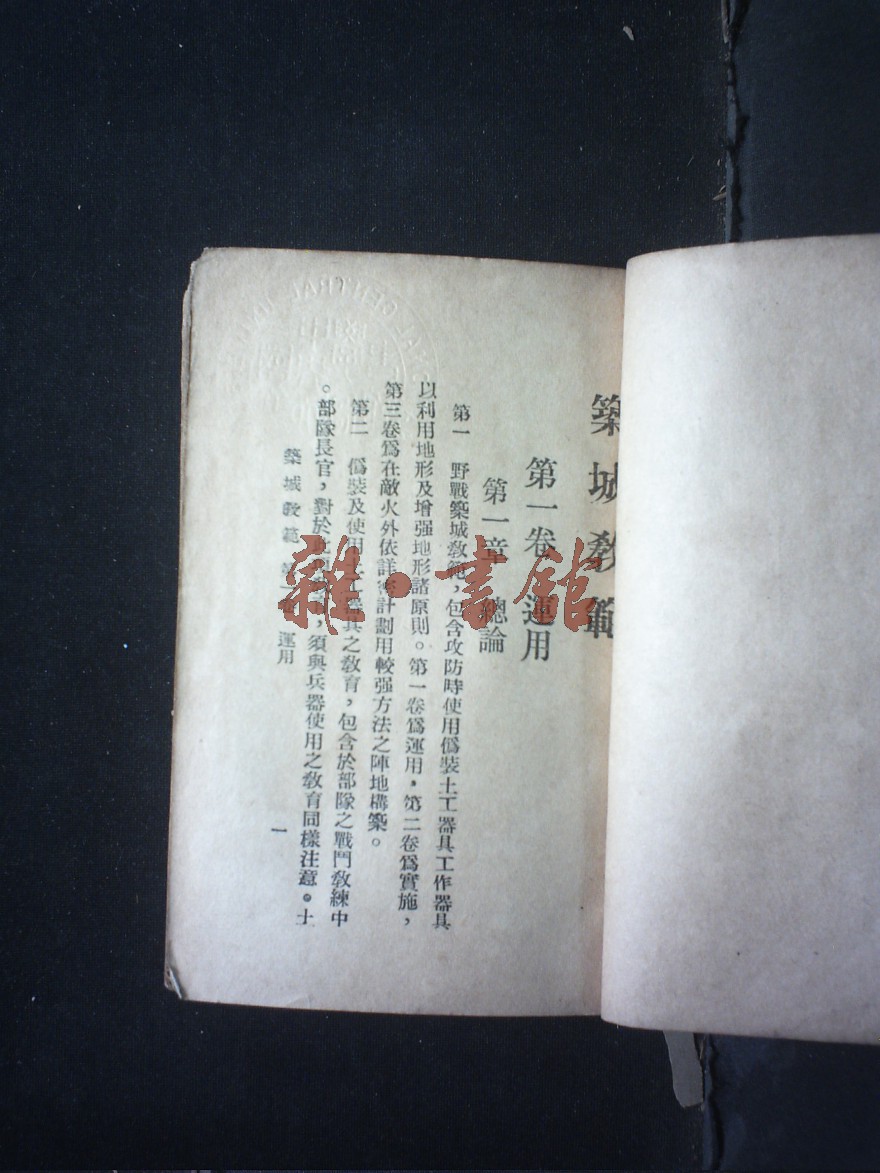 築城教範
第一卷 運用
第一章 總論
第一 野戰築城教範，包含攻防時使用僞裝土工器具工作器具
以利用地形及增强地形諸原則。第一卷爲運用，第二卷爲實施，
第三卷爲在敵火外依詳密計劃用較强方法之陣地構築。
第二 僞裝及使用土工器具之教育，包含於部隊之戰鬥教練中
。部隊長官，對於此，須與兵器使用之教育同樣注意。土
築城教範 第一卷 運用
一
雜·書館
CENTRAL